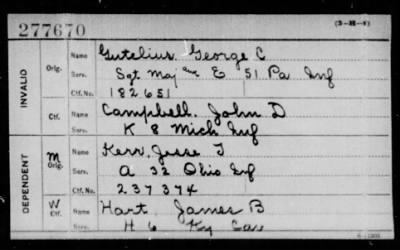 277670
(3-H-4)
INVALID Orig. Name Gutelius, George C
Serv. Sgt Maj and E 51 Pa Inf
Ctf. No. 182651
Ctf. Name Campbell, John D
Serv. K 8 Mich Inf
DEPENDENT M Orig. Name Kerr, Jesse T
Serv. A 32 Ohio Inf
Ctf. No. 237374
W Ctf. Name Hart, James B
Serv. H 6 Ky Cav